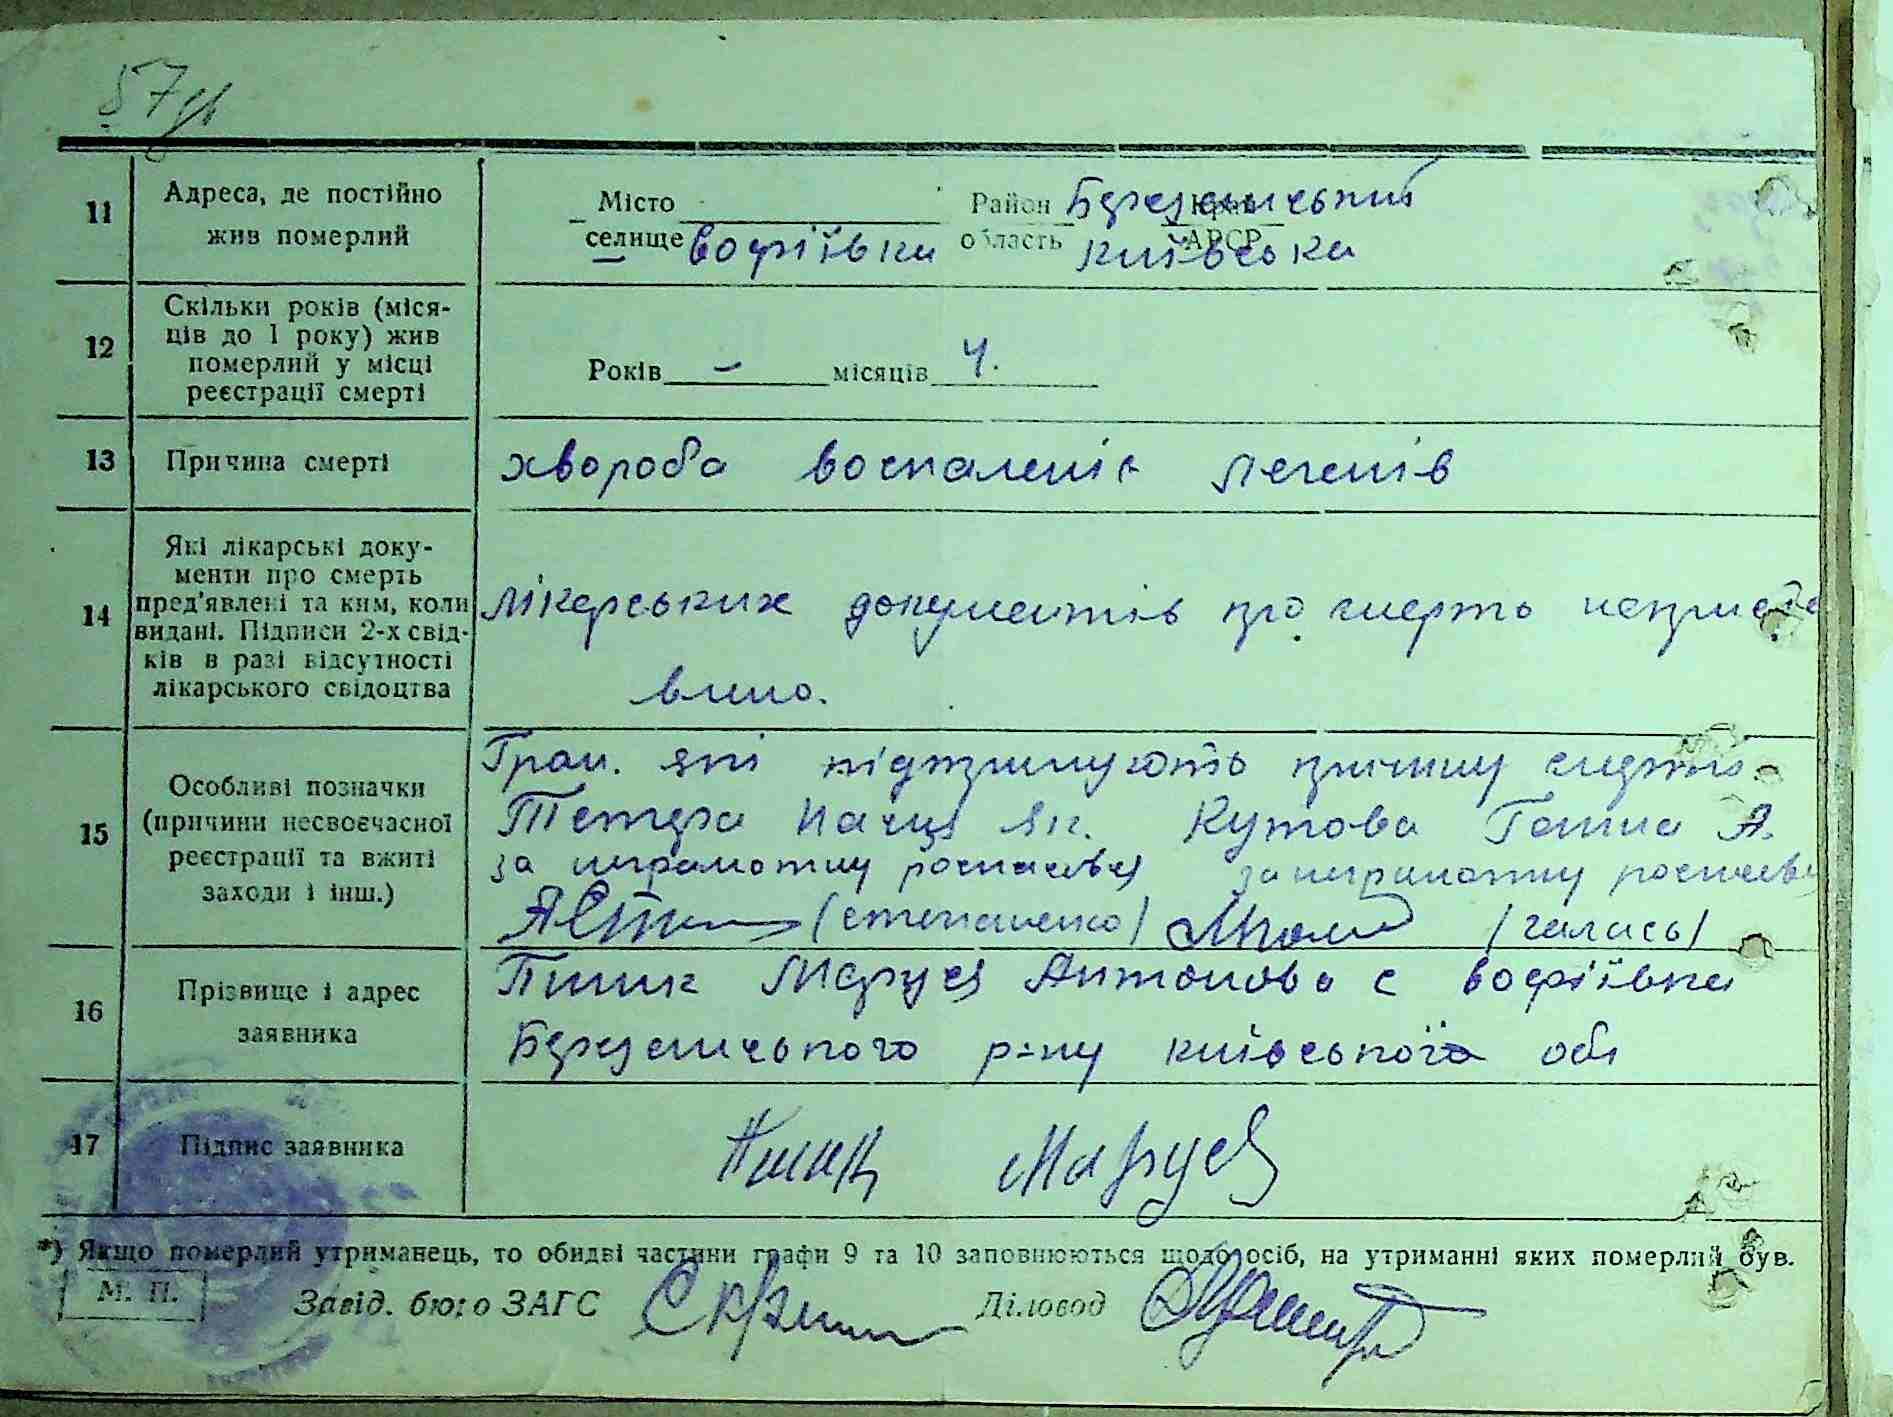 57
11 Адреса, де постійно жив померлий
Місто Район Березанський Край
селище Софіївка область Київська АРСР
12 Скільки років (міся-
ців до 1 року) жив
померлий у місці
реєстрації смерті
Років - місяців 4.
13 Причина смерті хвороба воспаленія легенів
14 Які лікарські доку-
менти про смерть
пред'явлені та ким, коли
видані. Підписи 2-х свід-
ків в разі відсутності
лікарського свідоцтва
Лікарських документів про смерть непридя
влино.
15 Особливі позначки
(причини несвоєчасної
реєстрації та вжиті
заходи і інш.)
Гром. які підтримують причину смерти
Тетера Настя Як. Кутова Ганна А.
за неграмотну росписався за неграмотну росписавс
(степаненко) (галась)
16 Прізвище і адрес
заявника
Пшик Маруся Антонова с Софіївка
Березанського р-ну київської обл
17 Підпис заявника Пшик Маруся
*) Якщо померлий утриманець, то обидві частини графи 9 та 10 заповнюються щодо осіб, на утриманні яких померлий був.
М. П. Завід. бюро ЗАГС Діловод